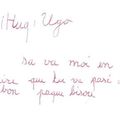 Hug, Ugo
sa va moi in
ire que tu va pasé
bon paque bisou